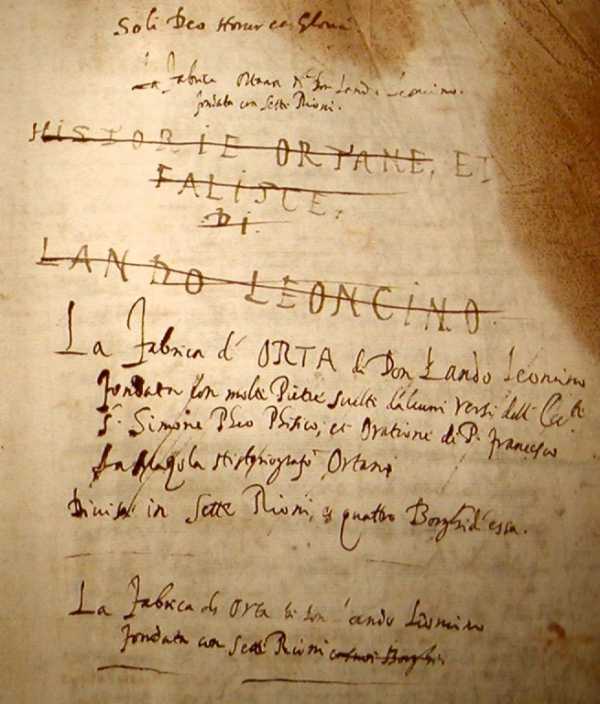 Soli Deo Honor et Gloria
La Fabrica Ortana di Don Lando Leoncino.
fondata con Sette Rioni.
HISTORIE ORTANE, ET
FALISCE.
DI
LANDO LEONCINO.
La Fabrica d' ORTA di Don Lando Leoncino
fondata con molte Pietre scelte d'alcuni versi dell'
Simone Phisico, et Oratione di P. Francesco
Historiografo Ortani
Divisa in Sette Rioni, e quattro Borghi d'essa.
La Fabrica di Orta di Don Lando Leoncino
fondata con Sette Rioni Borghi